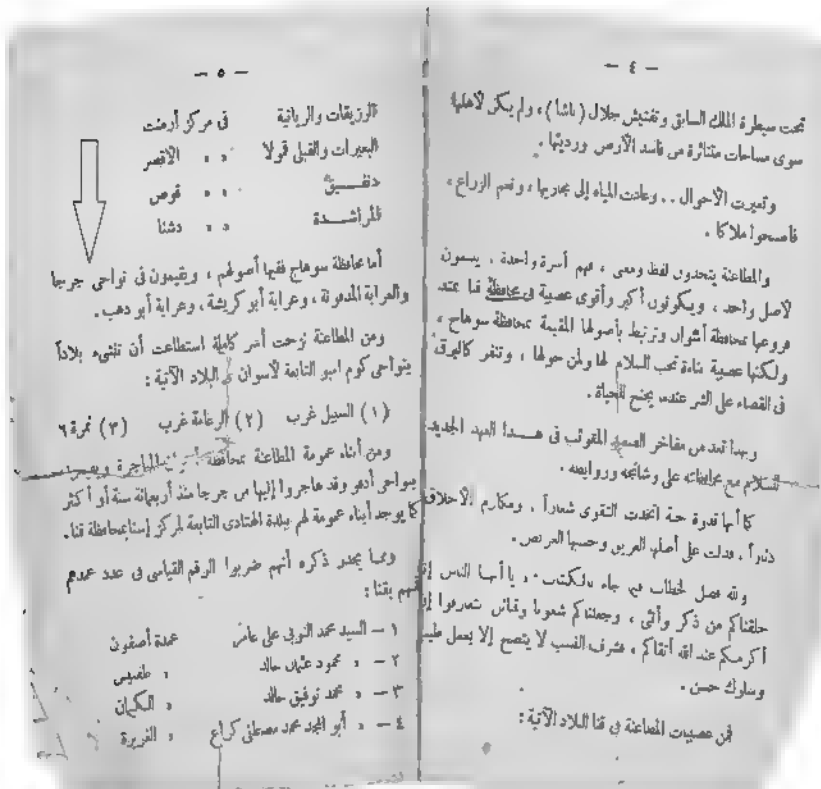 — ٤ —
تحت سيطرة الملك السابق وتفتيش جلال ( باشا ) ، ولم يكن لأهلها
سوى مساحات متناثرة من فاسد الأرض ورديئها .
وتغيرت الأحوال . . وعادت المياه إلى مجاريها ، ونعم الزراع ،
فأصبحوا ملاكا .
والمطاعنة يتحدون لفظ ومعنى ، فهم أسرة واحدة . ينتمون
لأصل واحد ، ويكونون أكبر وأقوى عصبية فى محافظة قنا تمتد
فروعها بمحافظة أسوان وترتبط بأصولها المقيمة بمحافظة سوهاج ،
ولكنها عصبية بناءة تحب السلام لها ولمن حولها ، وتنفر كالبرق
فى القضاء على الشر عندما يجنح للحياة .
وبهذا تعد من مفاخر الصعيد المتوثب فى هـــذا العهد الجديد
للسلام مع محافظاته على وشائجه وروابطه .
كما أنها قدوة حسنة اتخذت التقوى شعاراً . ومكارم الأخلاق
دثاراً . فدلت على أصلها العريق وحسبها العريض .
ولله فصل الخطاب فيما جاء بالكتاب : يا أيها الناس إنا
خلقناكم من ذكر وأنثى ، وجعلناكم شعوبا وقبائل لتعارفوا إن
أكرمكم عند الله أتقاكم ، فشرف النسب لا يتضح إلا بعمل طيب
وسلوك حسن .
فمن عصبيات المطاعنة فى قنا البلاد الآتية :
— ٥ —
الرزيقات والريانية فى مركز أرمنت
البعيرات والقبلى قولا » » الاقصر
دنفـــيق » » قوص
المراشـــدة » » دشنا
أما محافظة سوهاج ففيها أصولهم ، ويقيمون فى نواحى جرجا
والعرابة المدفونة ، وعرابة أبو كريشة ، وعرابة أبو دهب .
ومن المطاعنة نزحت أسر كاملة استطاعت أن تنشىء بلاداً
بنواحى كوم امبو التابعة لأسوان فى البلاد الآتية :
(١) السبيل غرب (٢) الرغامة غرب (٣) نمرة ٦
ومن أبناء عمومة المطاعنة بمحافظة
بنواحى أدفو وقد هاجروا إليها من جرجا منذ أربعمائة سنة أو أكثر
كما يوجد أبناء عمومة لهم ببلدة الهنتادى التابعة لمركز إسنا بمحافظة قنا .
ومما يجدر ذكره أنهم ضربوا الرقم القياسى فى عدد عمدهم
بقنا :
١ — السيد محمد النوبى على عامر عمدة أصفون
٢ — » محمود عثمان خالد » طفنيس
٣ — » محمد توفيق خالد » الكيمان
٤ — » أبو المجد محمد مصطفى كراع » الغريرة